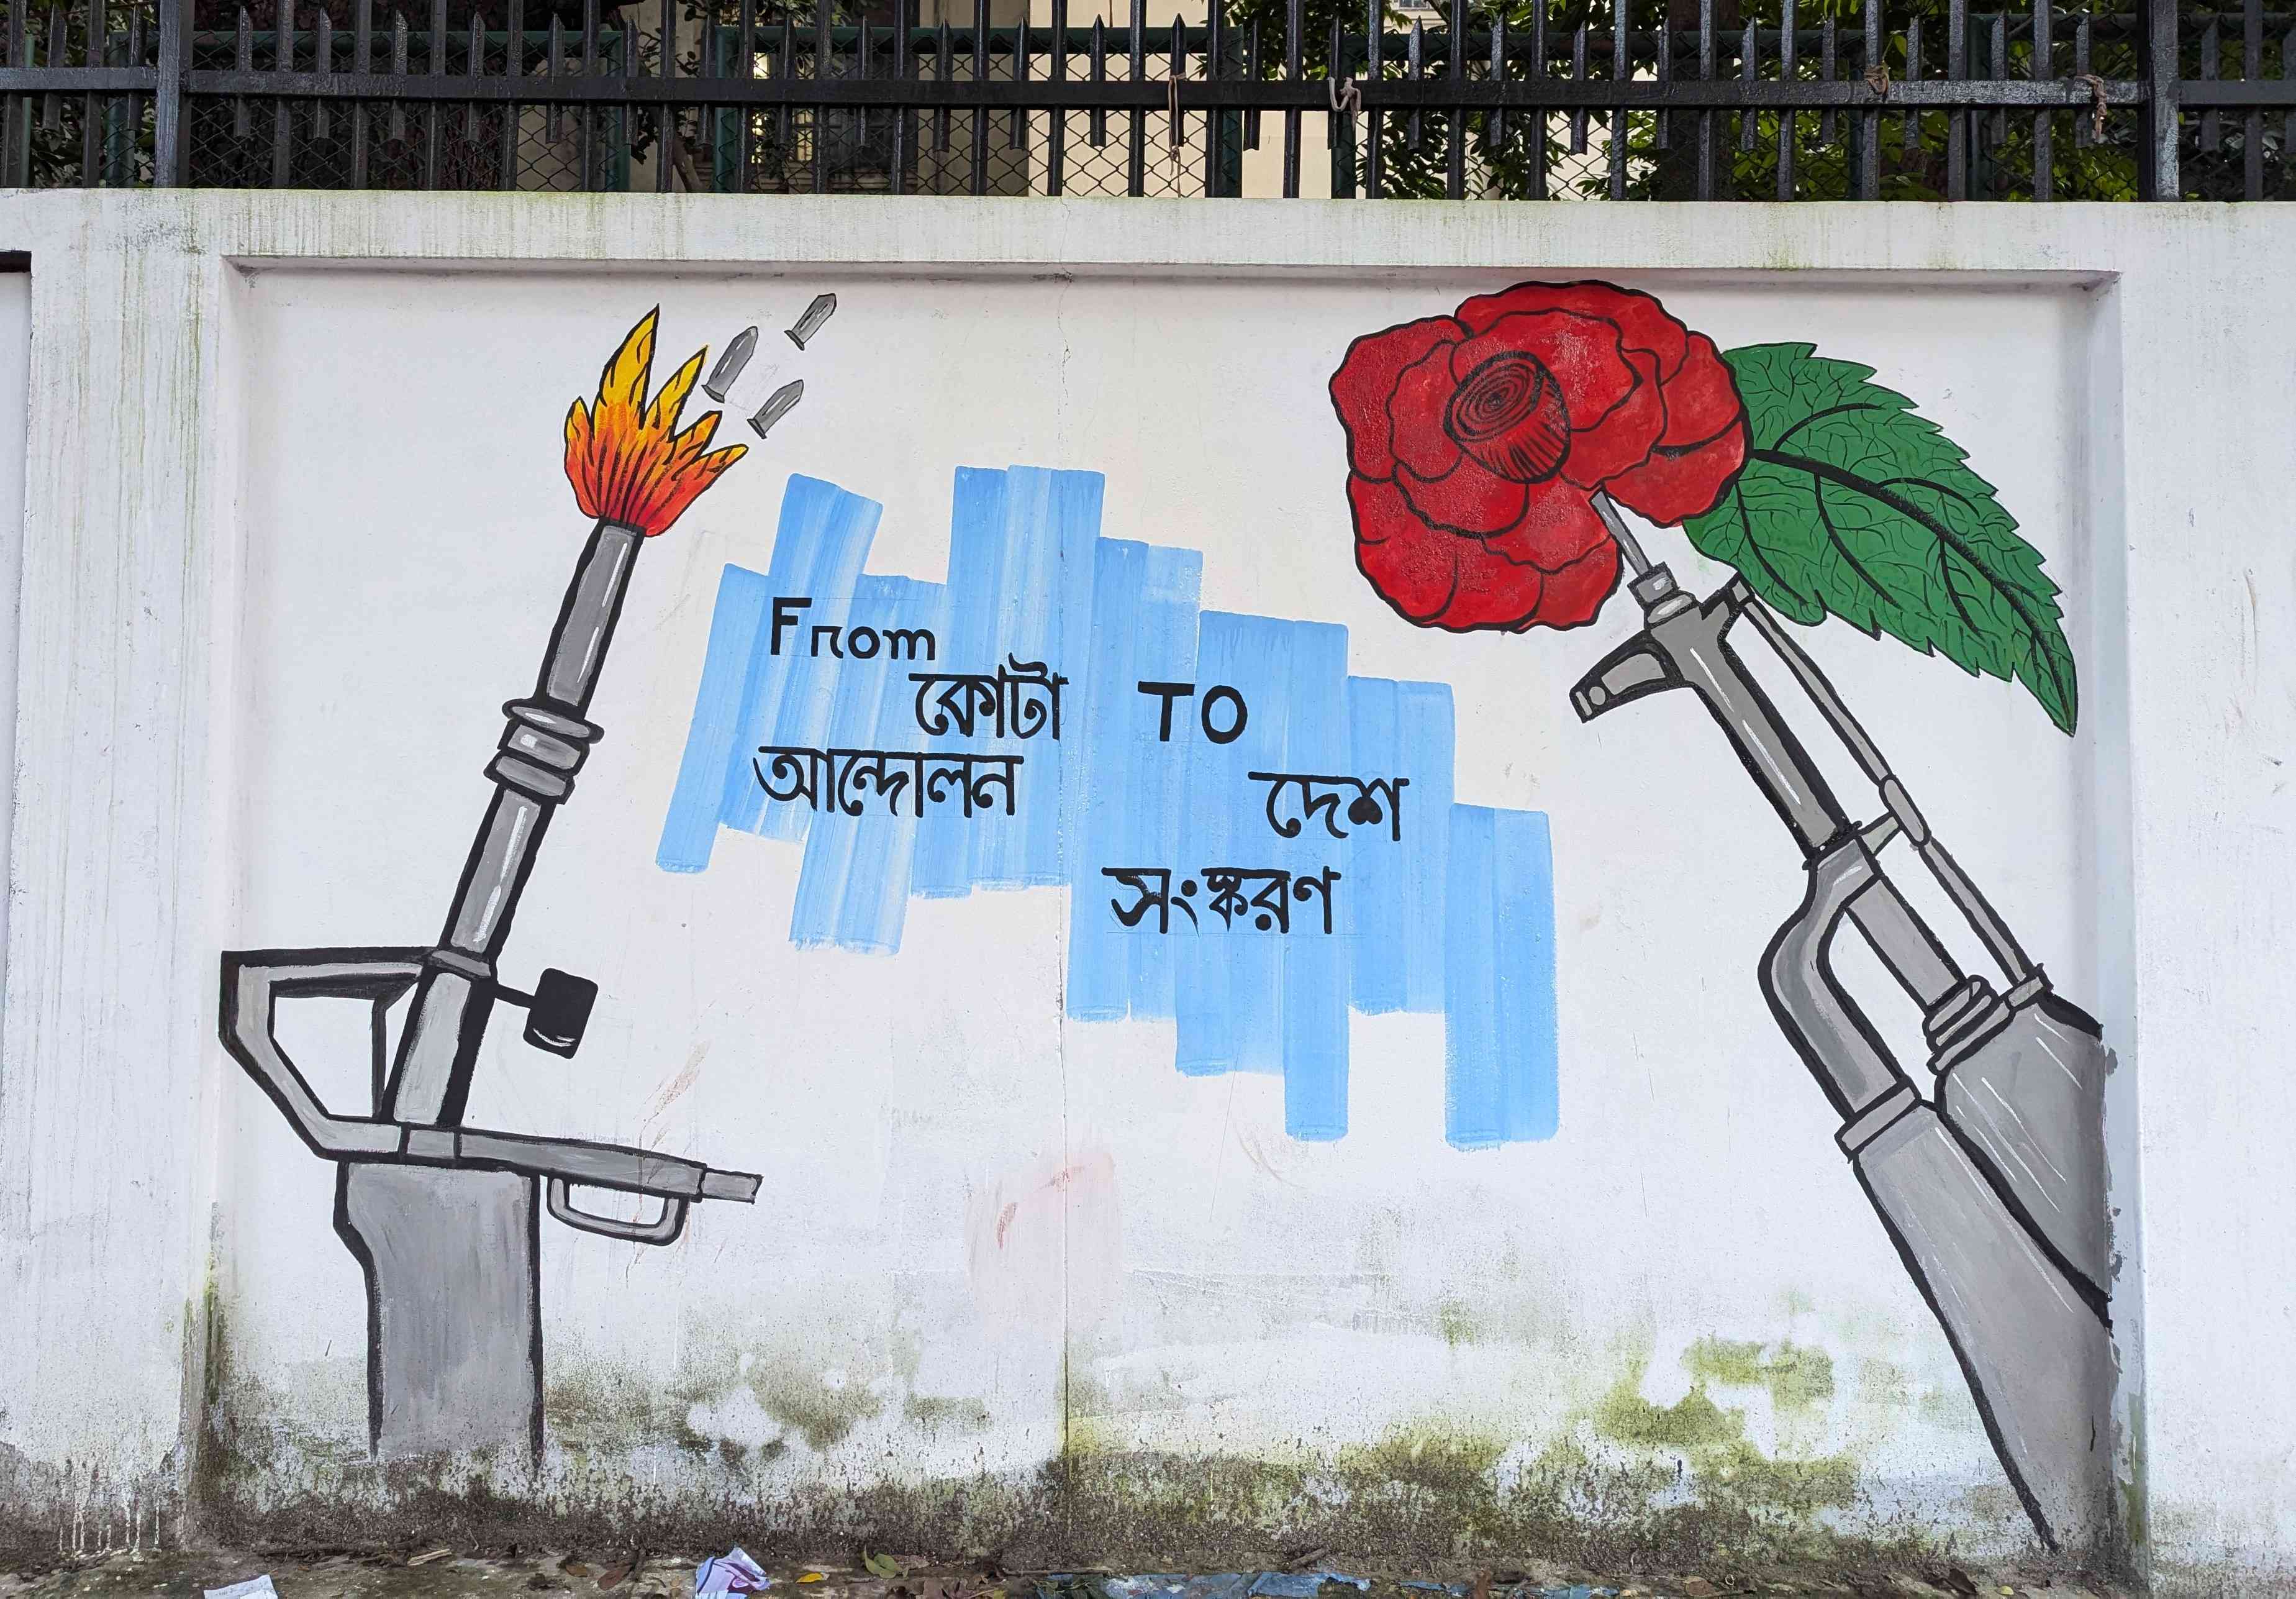 From
কোটা
আন্দোলন
TO
দেশ
সংস্করণ